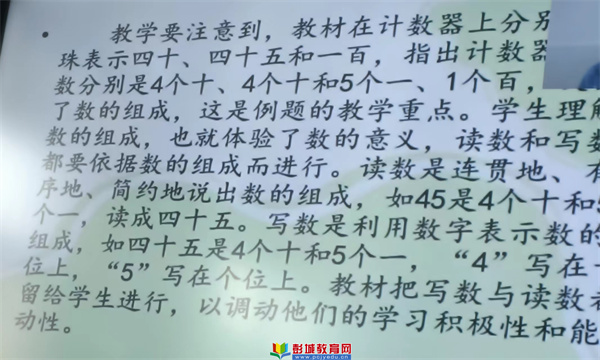 • 教学要注意到，教材在计数器上分别
珠表示四十、四十五和一百，指出计数器
数分别是4个十、4个十和5个一、1个百，
了数的组成，这是例题的教学重点。学生理解
数的组成，也就体验了数的意义，读数和写数
都要依据数的组成而进行。读数是连贯地、有
序地、简约地说出数的组成，如45是4个十和5
个一，读成四十五。写数是利用数字表示数的
组成，如四十五是4个十和5个一，“4”写在十
位上，“5”写在个位上。教材把写数与读数
留给学生进行，以调动他们的学习积极性和能
动性。
彭城教育网
www.pcjyedu.cn